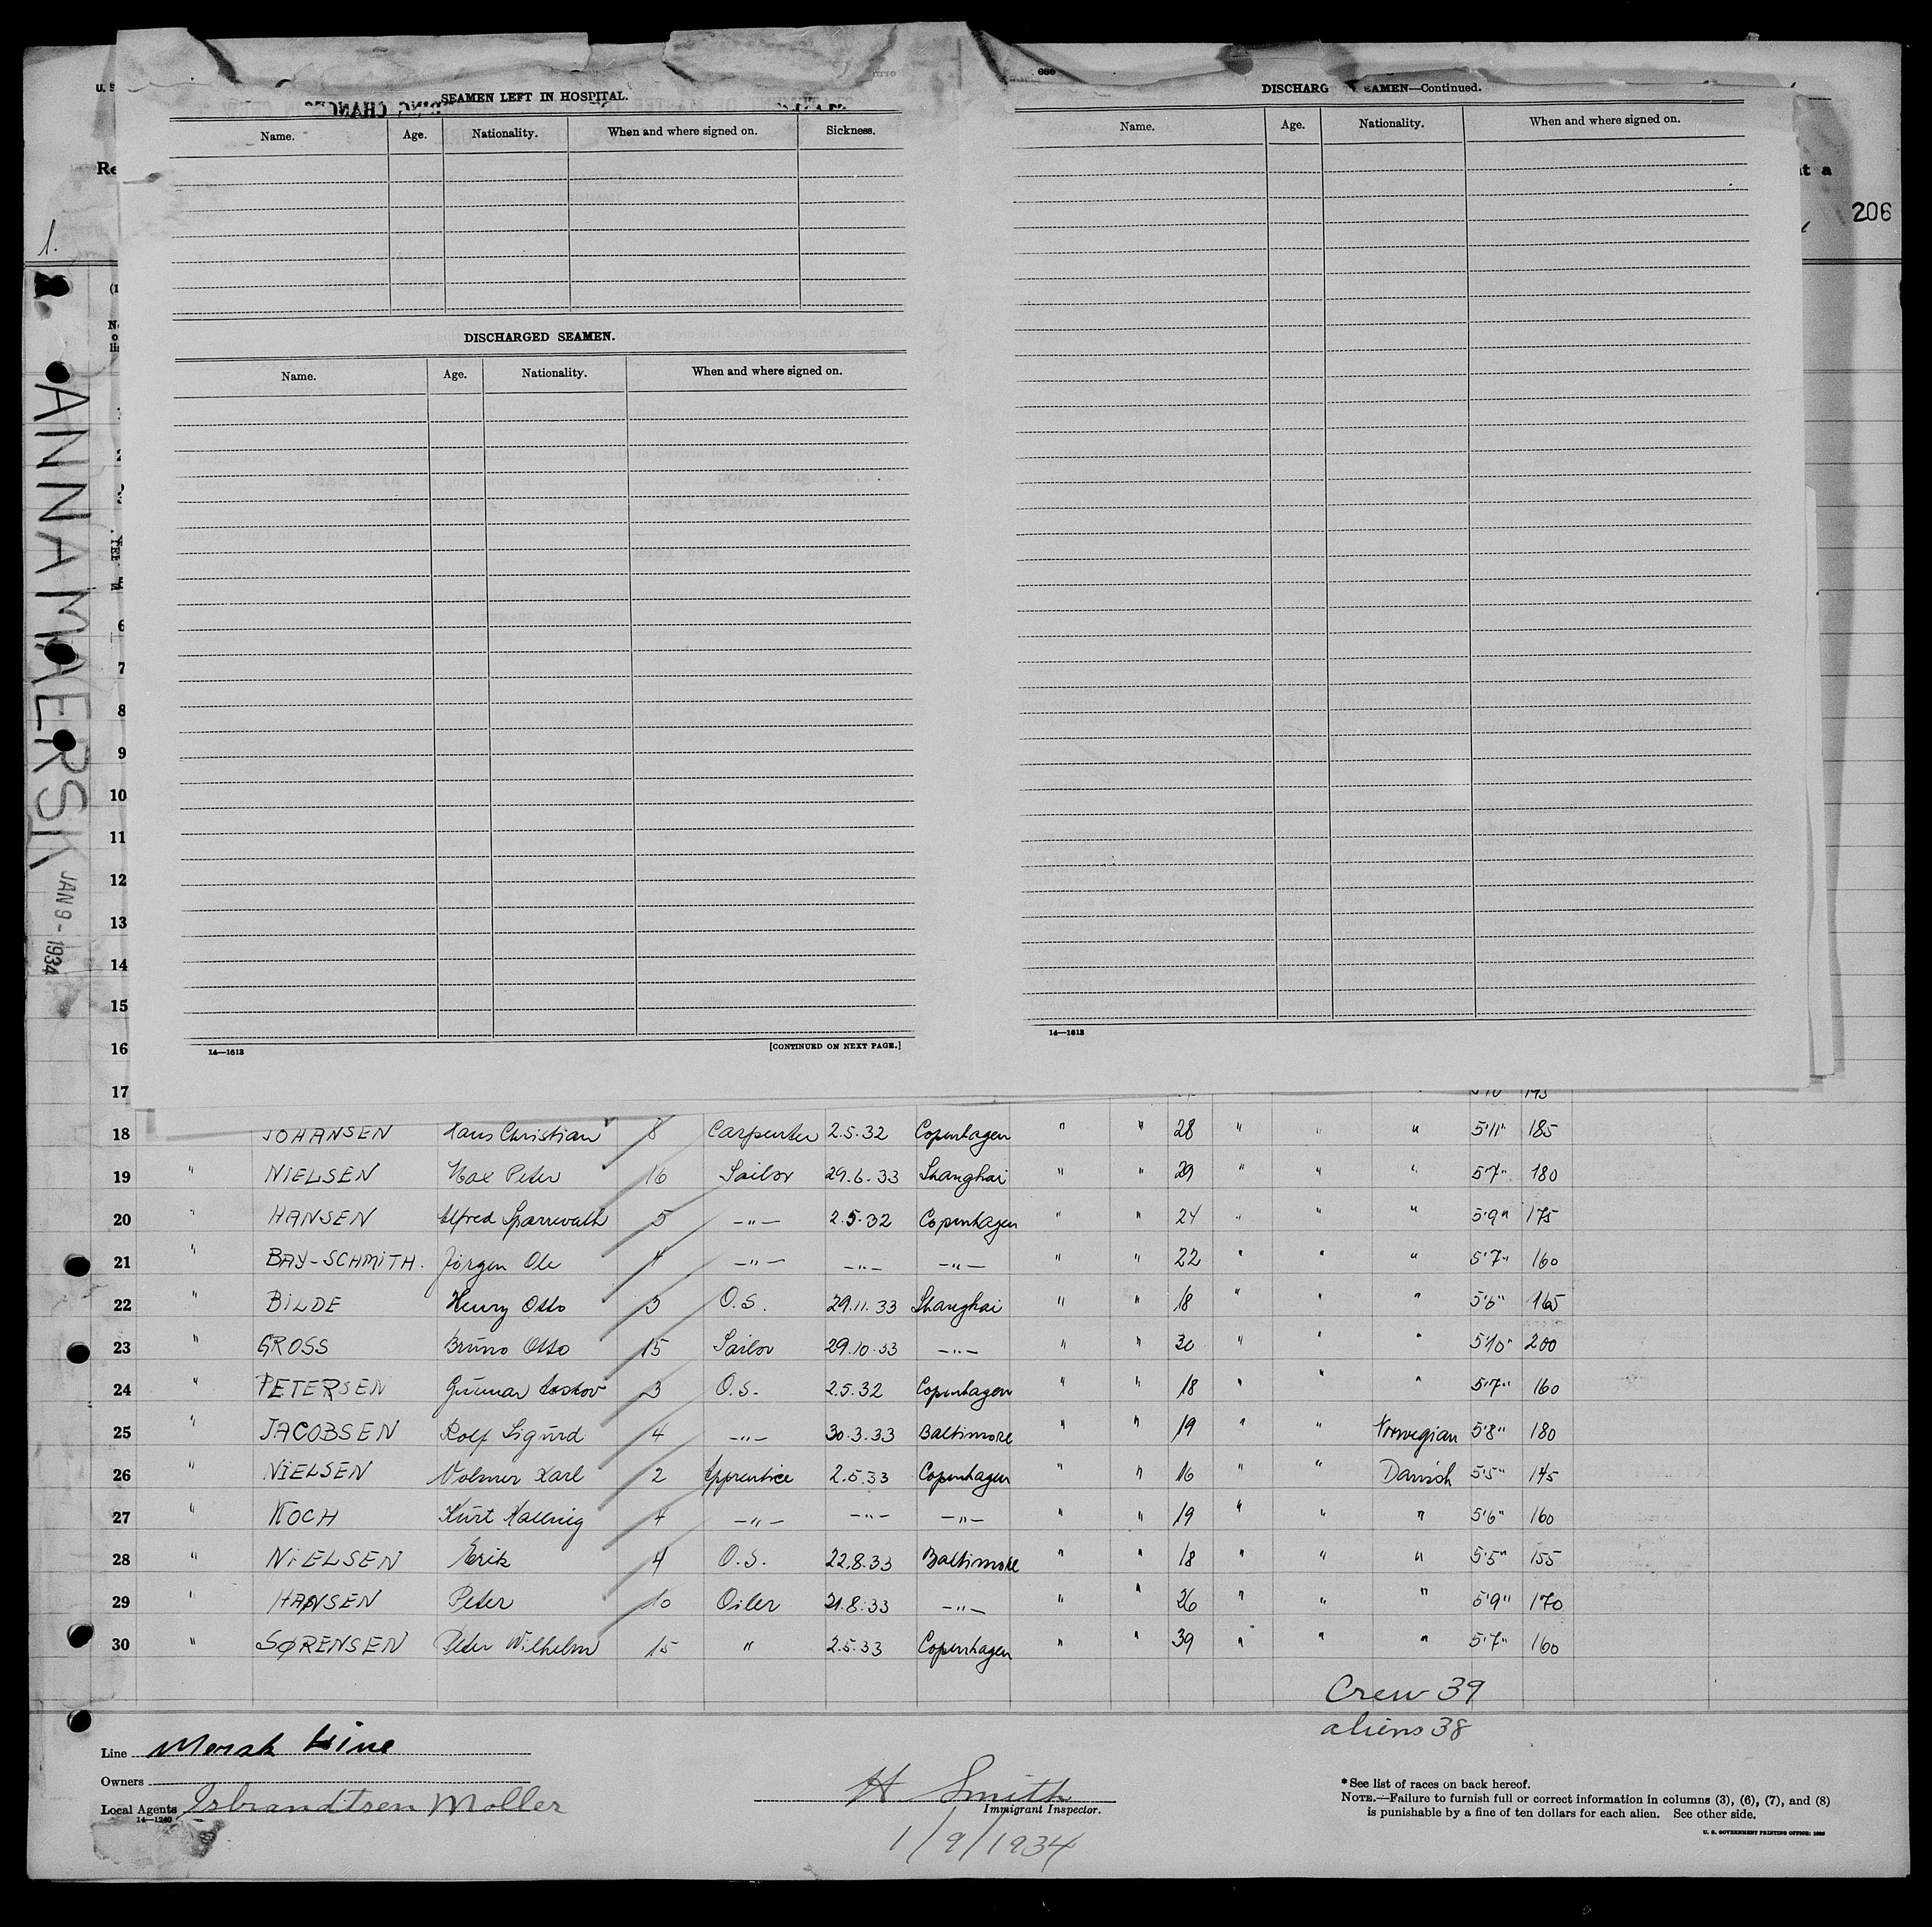 206
1.
ANNA MAERSK JAN 9 - 1934
SEAMEN LEFT IN HOSPITAL.
Name. Age. Nationality. When and where signed on. Sickness.
DISCHARGED SEAMEN.
Name. Age. Nationality. When and where signed on.
14—1613 [CONTINUED ON NEXT PAGE.]
DISCHARG EAMEN—Continued.
Name. Age. Nationality. When and where signed on.
14—1613
6
7
8
9
10
11
12
13
14
15
16
17
18 JOHANSEN Hans Christian 8 Carpenter 2.5.32 Copenhagen " " 28 " " " 5'11" 185
19 " NIELSEN Max Peter 16 Sailor 29.6.33 Shanghai " " 29 " " " 5'7" 180
20 " HANSEN Alfred Sparrevath 5 —"— 2.5.32 Copenhagen " " 24 " " " 5'9" 175
21 " BAY-SCHMITH. Jörgen Ole 4 —"— —"— —"— " " 22 " " " 5'7" 160
22 " BILDE Henry Otto 3 O.S. 29.11.33 Shanghai " " 18 " " " 5'6" 165
23 " GROSS Bruno Otto 15 Sailor 29.10.33 —"— " " 30 " " " 5'10" 200
24 " PETERSEN Gunnar 3 O.S. 2.5.32 Copenhagen " " 18 " " " 5'7" 160
25 " JACOBSEN Rolf Sigurd 4 —"— 30.3.33 Baltimore " " 19 " " Norwegian 5'8" 180
26 " NIELSEN Volmer Karl 2 Apprentice 2.5.33 Copenhagen " " 16 " " Danish 5'5" 145
27 " KOCH Kurt 4 —"— —"— —"— " " 19 " " " 5'6" 160
28 " NIELSEN Erik 4 O.S. 22.8.33 Baltimore " " 18 " " " 5'5" 155
29 " HANSEN Peter 10 Oiler 21.8.33 —"— " " 26 " " " 5'9" 170
30 " SØRENSEN Peter Wilhelm 15 " 2.5.33 Copenhagen " " 39 " " " 5'7" 160
Crew 39
aliens 38
Line Mersk Line
Owners
Local Agents Isbrandtsen Moller
14—1240
H Smith
Immigrant Inspector.
1/9/1934
* See list of races on back hereof.
NOTE.—Failure to furnish full or correct information in columns (3), (6), (7), and (8)
is punishable by a fine of ten dollars for each alien. See other side.
U. S. GOVERNMENT PRINTING OFFICE: 1933